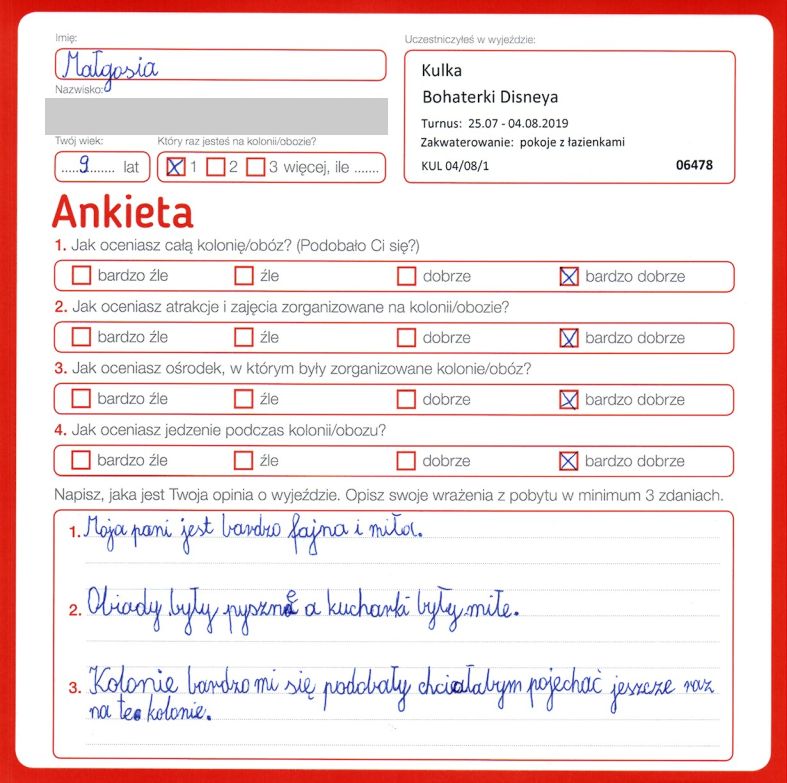 Imię:
Małgosia
Nazwisko:
Twój wiek:
Który raz jesteś na kolonii/obozie?
.....9........ lat
1 2 3 więcej, ile .......
Uczestniczyłeś w wyjeździe:
Kulka
Bohaterki Disneya
Turnus: 25.07 - 04.08.2019
Zakwaterowanie: pokoje z łazienkami
KUL 04/08/1 06478
Ankieta
1. Jak oceniasz całą kolonię/obóz? (Podobało Ci się?)
bardzo źle źle dobrze bardzo dobrze
2. Jak oceniasz atrakcje i zajęcia zorganizowane na kolonii/obozie?
bardzo źle źle dobrze bardzo dobrze
3. Jak oceniasz ośrodek, w którym były zorganizowane kolonie/obóz?
bardzo źle źle dobrze bardzo dobrze
4. Jak oceniasz jedzenie podczas kolonii/obozu?
bardzo źle źle dobrze bardzo dobrze
Napisz, jaka jest Twoja opinia o wyjeździe. Opisz swoje wrażenia z pobytu w minimum 3 zdaniach.
1. Moja pani jest bardzo fajna i miła.
2. Obiady były pyszne a kucharki były miłe.
3. Kolonie bardzo mi się podobały chciałabym pojechać jeszcze raz
na te kolonie.